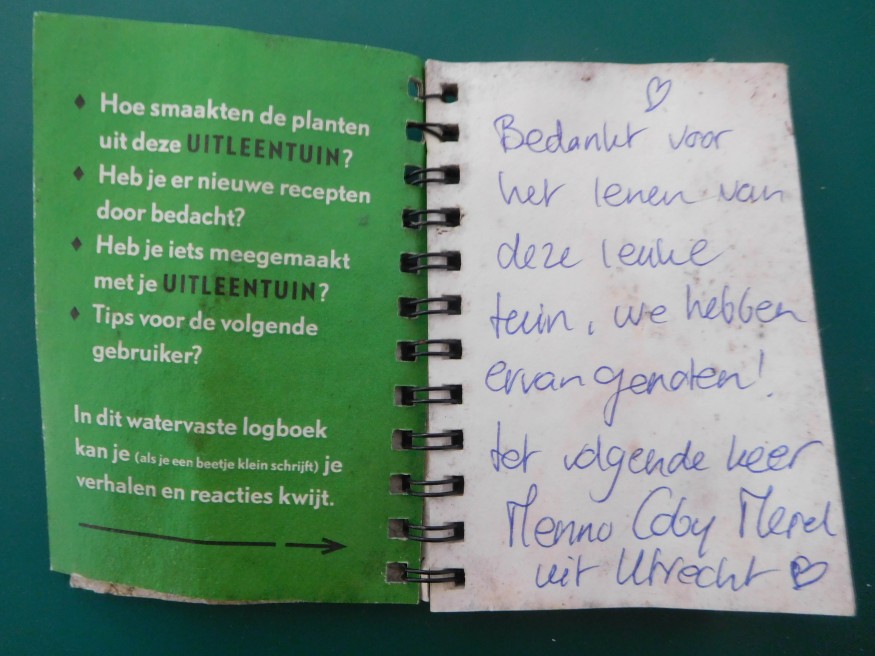 Hoe smaakten de planten
uit deze UITLEENTUIN?
Heb je er nieuwe recepten
door bedacht?
Heb je iets meegemaakt
met je UITLEENTUIN?
Tips voor de volgende
gebruiker?
In dit watervaste logboek
kan je (als je een beetje klein schrijft) je
verhalen en reacties kwijt.
Bedankt voor
het lenen van
deze leuke
tuin, we hebben
ervan genoten!
tot volgende keer
Menno Coby Merel
uit Utrecht